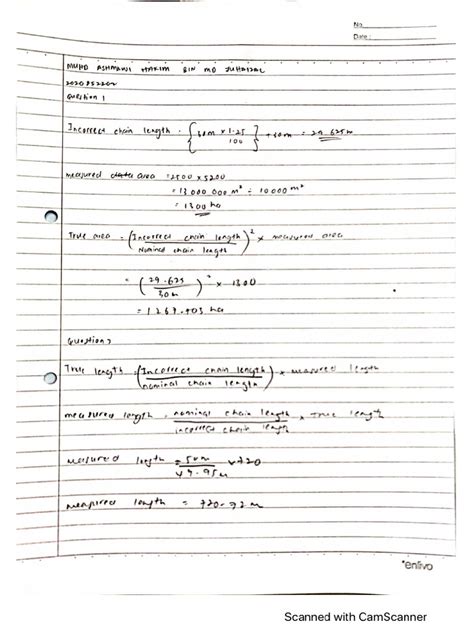 No.
Date:
MUHD ASHMAWI HAKIM BIN MD JUHAIZAL
Question 1
Incorrect chain length = { 30m x 1.25 / 100 } + 30m = 29.625m
measured data area = 2500 x 5200
= 13 000 000 m² ÷ 10 000 m²
= 1300 ha
True area = ( Incorrect chain length / Nominal chain length )² x measured area
= ( 29.625 / 30m )² x 1300
= 1267.703 ha
Question 2
True length = ( Incorrect chain length / nominal chain length ) x measured length
measured length = nominal chain length / incorrect chain length x True length
measured length = 50m / 49.95m x 720
measured length = 720.72m
enlivo
Scanned with CamScanner